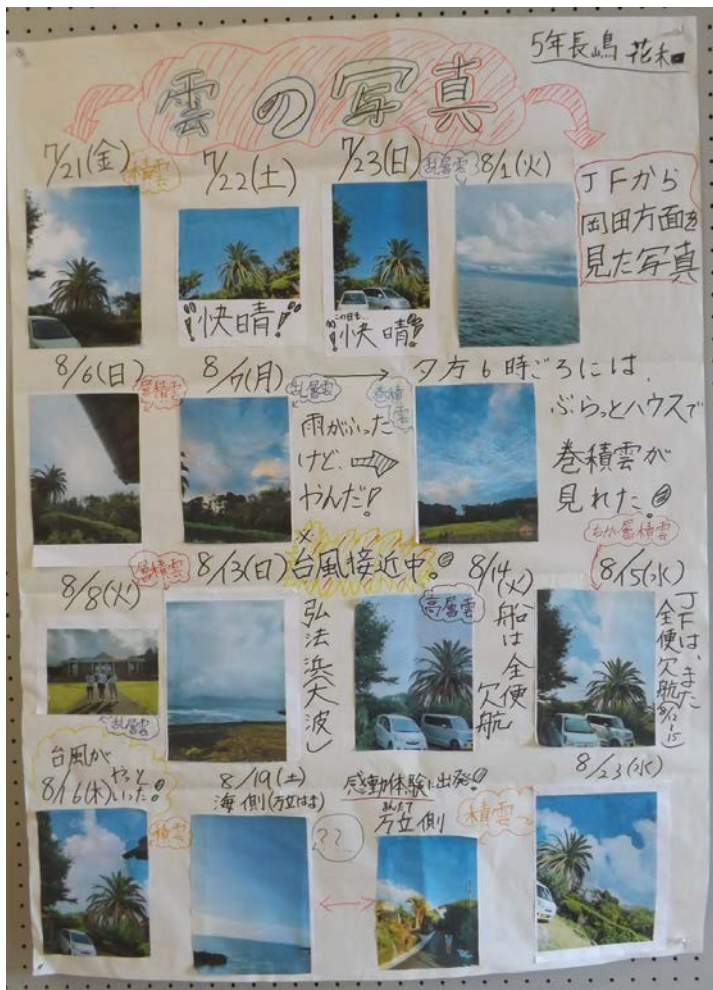 5年長嶋 花和
雲の写真
7/21(金)
積雲
7/22(土)
"快晴!"
7/23(日)
この日も…
"快晴!"
乱層雲
8/1(火)
JFから
岡田方面を
見た写真
8/6(日)
層積雲
8/7(月)
乱層雲
雨がふった
けど、
やんだ!
巻積雲
夕方6時ごろには、
ぶらっとハウスで
巻積雲が
見れた。
8/8(火)
乱層雲
層積雲
8/13(日)
台風接近中。
弘法浜(大波)
高層雲
8/14(火)
船は全便
欠航
層積雲
8/15(水)
JFは、また
全便欠航(8/12~15)
台風が
やっと
8/16(木)いった!
積雲
8/19(土)
海側(万立はま)
??
感動体験に出発!
まんたて
万立側
積雲
8/23(水)